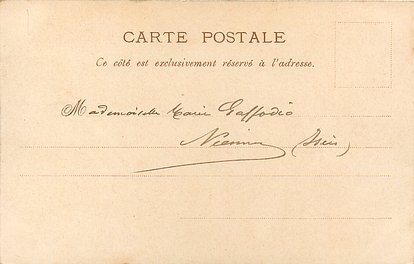 CARTE POSTALE
Ce côté est exclusivement réservé à l'adresse.
Mademoiselle Marie Gaffodio
(Isère)